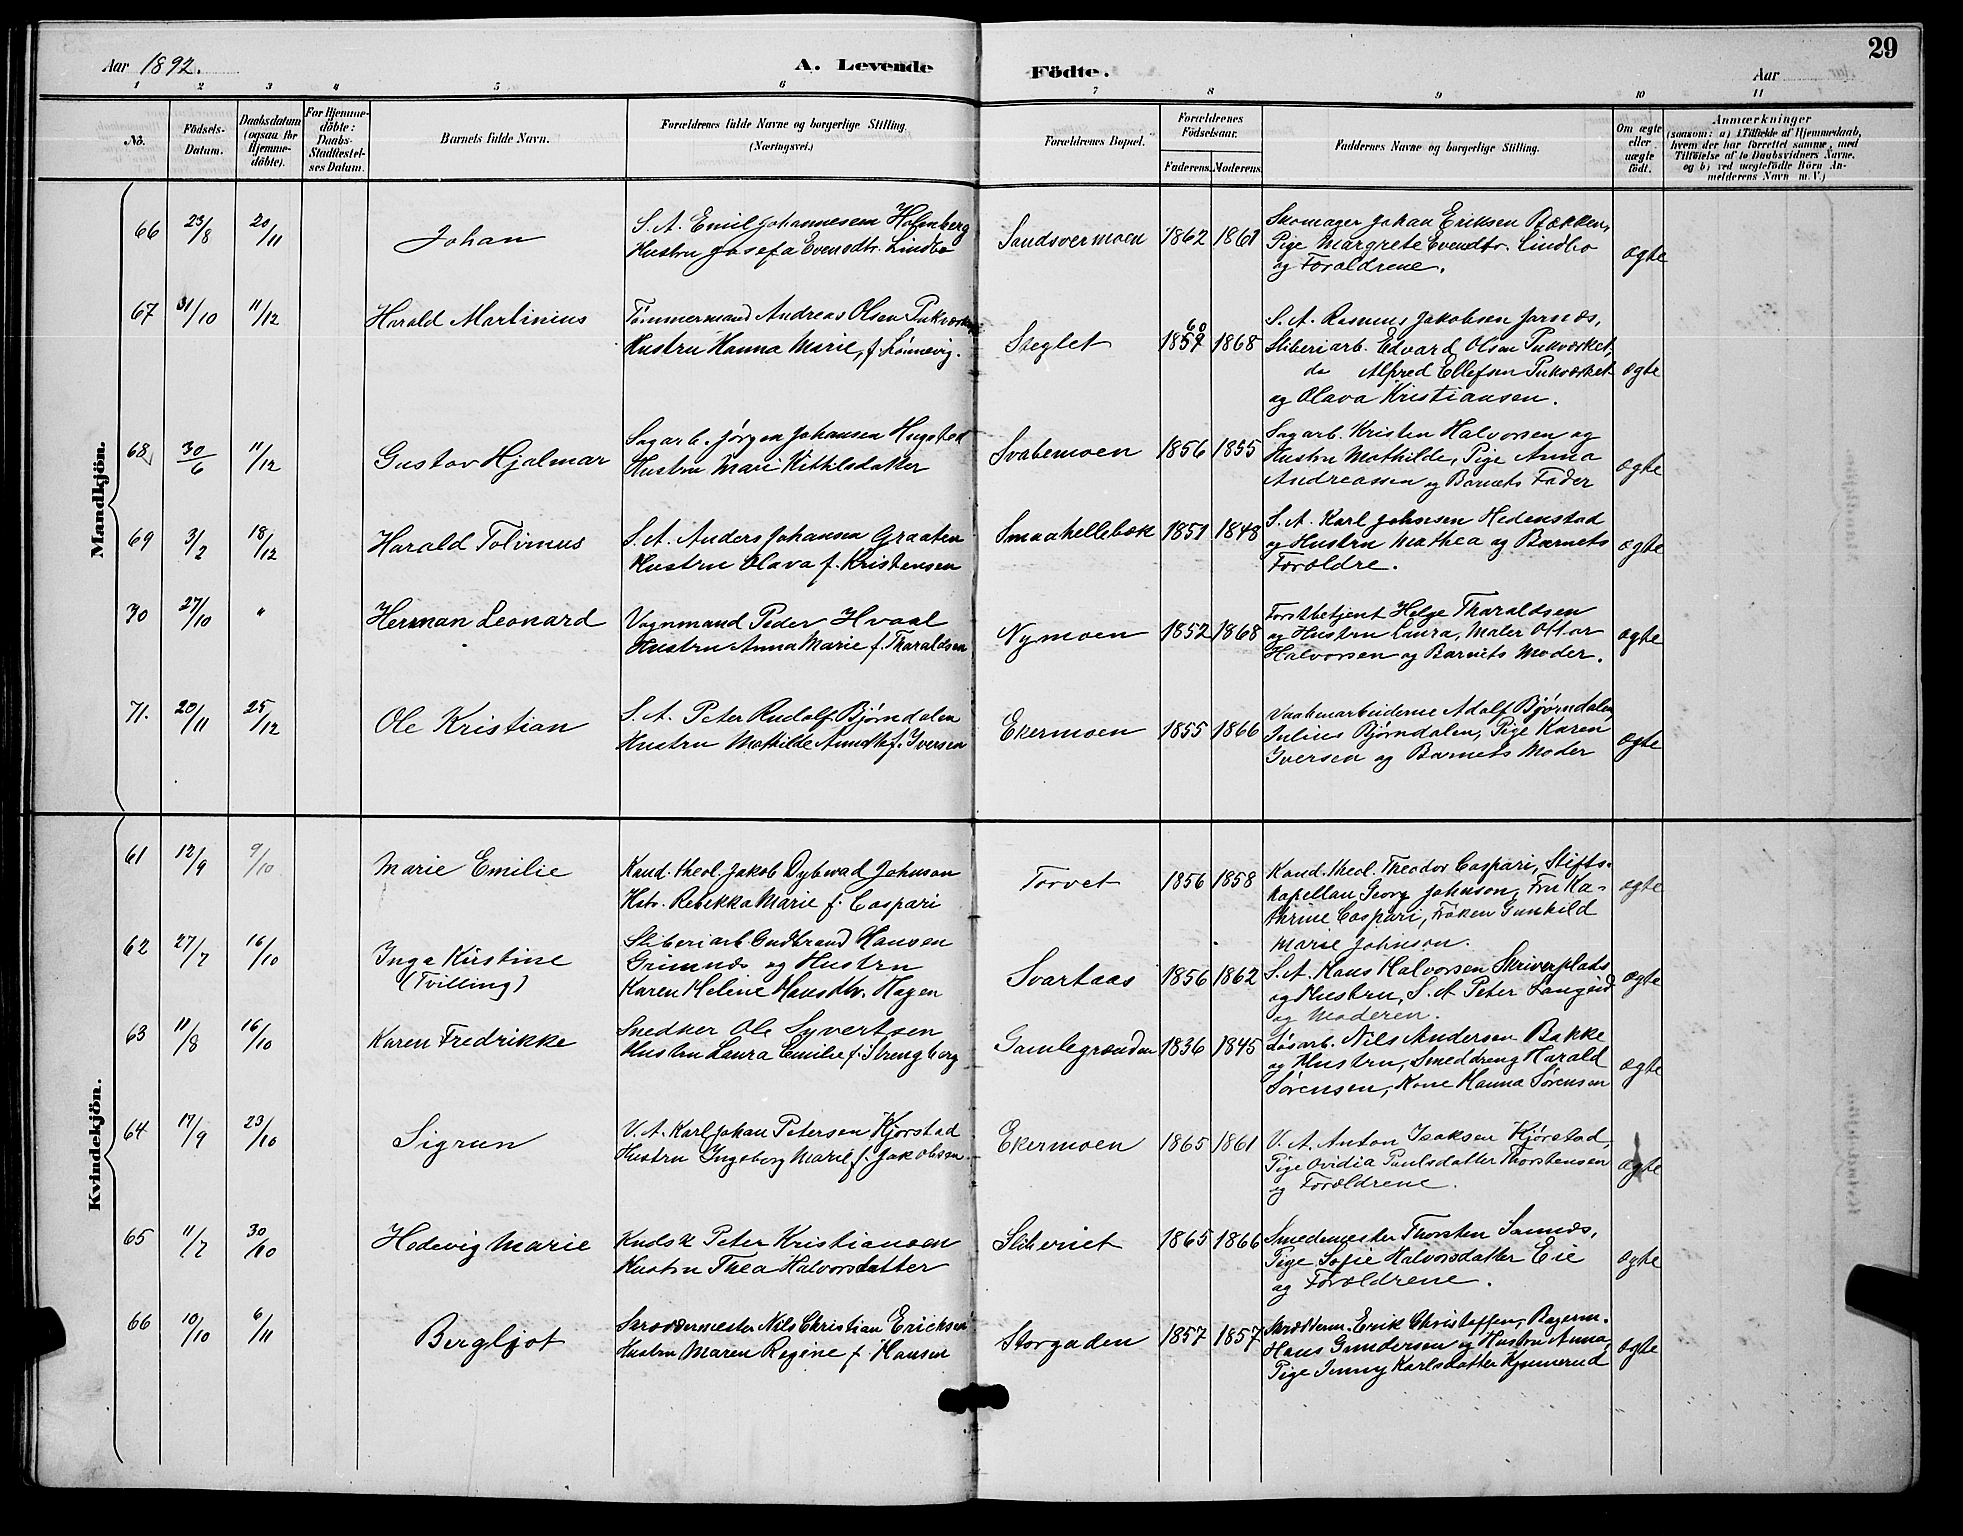 29
Aar 1892.
A. Levende Födte.
Aar
1 2 3 4 5 6 7 8 9 10 11
No.
Födsels-Datum.
Daabsdatum (ogsaa for Hjemme-döbte).
For Hjemme-döbte: Daabs-Stadfæstel-ses Datum.
Barnets fulde Navn.
Forældrenes fulde Navne og borgerlige Stilling. (Næringsvei.)
Forældrenes Bopæl.
Forældrenes Födselsaar.
Faderens. Moderens.
Faddernes Navne og borgerlige Stilling.
Om ægte eller uægte födt.
Anmærkninger
(saasom: a) i Tilfælde af Hjemmedaab, hvem der har forrettet samme, med Tilföielse af to Daabsvidners Navne, og b) ved uægtefödte Börn An-melderens Navn m. V.)
Mandkjön.
66 23/8 20/11 Johan
S. A. Emil Johannesen Holmberg
Hustru Josefa Evensdtr. Lindbo
Sandsvermoen 1862 1861
Skomager Johan Eriksen Bækken,
Pige Margrete Evendtr. Lindbo
og Forældrene.
ægte
67 31/10 11/12 Harald Martinius
Tømmermand Andreas Olsen Pukværket
Hustru Hanna Marie, f. Lønnevig.
Steglet 1857 60 1868
S. A. Rasmus Jakobsen Jarnæs,
Sliberiarb. Edvard Olsen Pukværket,
do Alfred Ellefsen Pukværket
og Olava Kristiansen.
ægte
68 30/6 11/12 Gustav Hjalmar
Sagarb. Jørgen Johansen Hugstad
Hustru Mari Kittilsdatter
Svabemoen 1856 1855
Sagarb. Kristen Halvorsen og
Hustru Mathilde, Pige Anna
Andreassen og Barnets Fader
ægte
69 3/2 18/12 Harald Tolinius
S. A. Anders Johansen Graaten
Hustru Olava f. Kristensen
Smaahellebæk 1851 1848
S. A. Karl Johnsen Hedenstad
og Hustru Mathea og Barnets
Forældre.
ægte
30 27/10 " Herman Leonard
Vognmand Peder Hvaal
Hustru Anna Marie f. Tharaldsen
Nymoen 1852 1868
Forstbetjent Helge Tharaldsen
og Hustru Laura, Maler Ottar
Halvorsen og Barnets Moder.
ægte
71. 20/11 25/12 Ole Kristian
S. A. Peter Rudolf Bjørndalen
Hustru Mathilde f. Iversen
Ekermoen 1855 1866
Vaabenarbeiderne Adolf Bjørndalen,
Julius Bjørndalen, Pige Karen
Iversen og Barnets Moder
ægte
Kvindekjön.
61 12/9 9/10 Marie Emilie
Kand. theol. Jakob Dybwad Johnson
Hstr. Rebekka Marie f. Caspari
Torvet 1856 1858
Kand. theol. Theodor Caspari, Stifts-
kapellan Georg Johnson, Fru Ka-
thrine Caspari, Frøken Gunhild
Marie Johnson.
ægte
62 27/7 16/10 Inga Kirstine
(Tvilling)
Sliberiarb. Gudbrand Hansen
Grimnæs og Hustru
Karen Helene Hansdtr. Hagen
Svartaas 1856 1862
S. A. Hans Halvorsen Skriverplads
og Hustru, S. A. Peter Langeid
og Moderen.
ægte
63 11/8 16/10 Karen Fredrikke
Snedker Ole Syvertsen
Hustru Laura Emilie f. Strengberg
Gamlegrænden 1836 1845
Løsarb. Nils Andersen Bakke
og Hustru, Smeddreng Harald
Sørensen, Kone Hanna Sørensen
ægte
64 17/9 23/10 Sigrun
V. A. Karl Johan Petersen Kjørstad
Hustru Ingeborg Marie f. Jakobsen.
Ekermoen 1865 1861
V. A. Anton Isaksen Kjørstad,
Pige Ovidia Paulsdatter Thorstensen
og Forældrene.
ægte
65 11/7 30/10 Hedevig Marie
Kudsk Peter Kristiansen
Hustru Thea Halvorsdatter
Sliberiet 1865 1866
Smedemester Thorsten Samnæs,
Pige Sofie Halvorsdatter Eie
og Forældrene.
ægte
66 10/10 6/11 Bergljot
Skræddermester Nils Christian Ericksen
Hustru Maren Regine f. Hansen
Storgaden 1857 1857
Skrædderm. Erik Christoffen, Bagerm.
Hans Gundersen og Hustru Anna,
Pige Jenny Karlsdatter Kjennerud
ægte